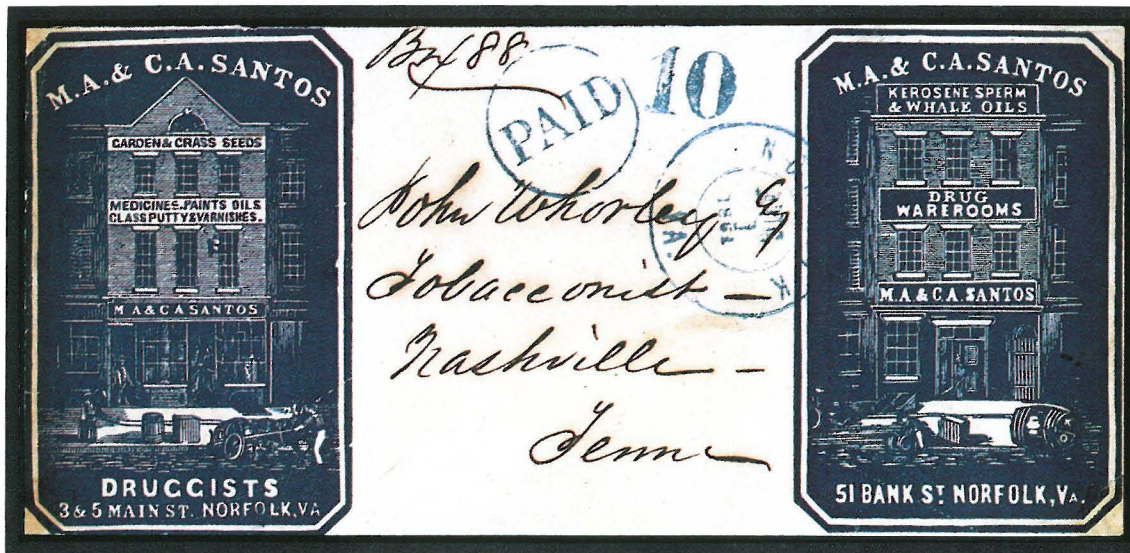 M.A. & C.A. SANTOS
GARDEN & GRASS SEEDS
MEDICINES. PAINTS OILS
GLASS PUTTY & VARNISHES.
M A & C A SANTOS
DRUGGISTS
3 & 5 MAIN ST. NORFOLK, VA
88
PAID
10
John Whorley
Tobacconist —
Nashville —
Tenn
M.A. & C.A. SANTOS
KEROSENE SPERM
& WHALE OILS
DRUG
WAREROOMS
M. A & C.A. SANTOS
51 BANK ST NORFOLK, VA.